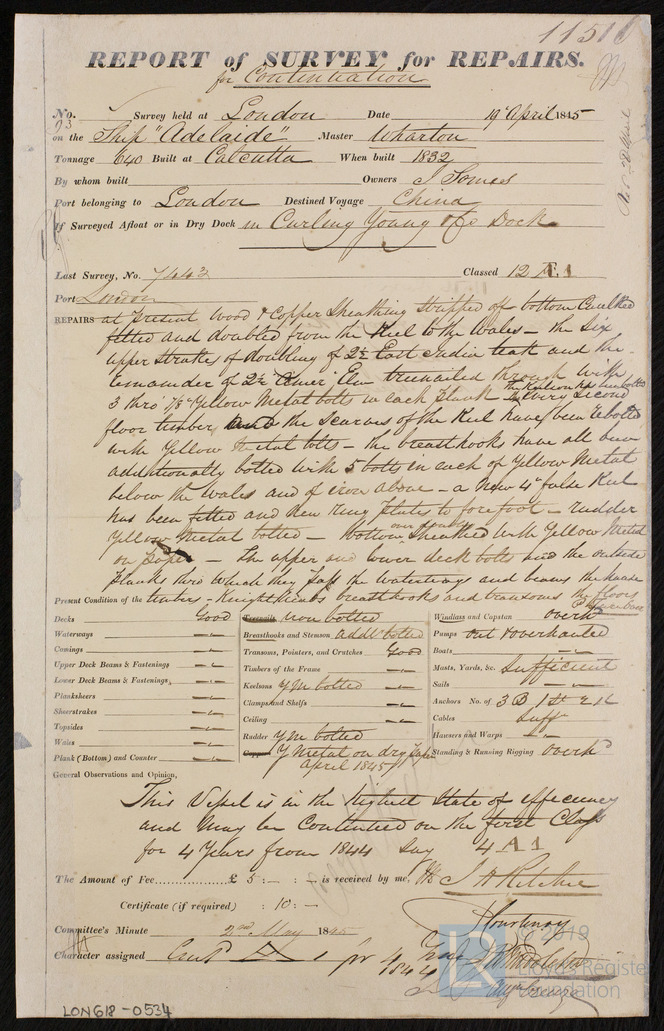 11516
REPORT of SURVEY for REPAIRS.
for Continuation
No. 93 Survey held at London Date 19 April 1845
on the Ship "Adelaide" Master Wharton
Tonnage 640 Built at Calcutta When built 1832
By whom built Owners J Somes
Port belonging to London Destined Voyage China
If Surveyed Afloat or in Dry Dock in Curling Young & Co Dock
Last Survey, No. 7443 Classed 12 A1
Port London
REPAIRS at Present Wood & Copper Sheathing stripped of bottom Caulked
felted and doubled from the Keel to the Wales – the Six
upper strakes of doubling of 2½ East India teak and the
remainder of 2½ Amer Elm treenailed through with
3 thro' 7/8 Yellow Metal bolts in each plank – every second
floor timber the scarves of the Keel have been rebolted
with Yellow Metal bolts – the breasthooks have all been
additionally bolted with 5 bolts in each of Yellow Metal
below the Wales and of iron above – a new 4" false Keel
has been fitted and new ring plates to forefoot – rudder
Yellow Metal bolted – bottom sheathed with Yellow Metal
on paper – the upper and lower deck bolts and the outside
planks thro which they pass the waterways and beams the
timbers – Knightheads breasthooks and transoms the floors
Present Condition of the
Decks Good
Waterways
Comings
Upper Deck Beams & Fastenings
Lower Deck Beams & Fastenings,
Planksheers
Sheerstrakes
Topsides
Wales
Plank (Bottom) and Counter
iron bolted
Breasthooks and Stemson addl bolted
Transoms, Pointers, and Crutches Good
Timbers of the Frame
Keelsons YM bolted
Clamps and Shelfs
Ceiling
Rudder YM bolted
Copper Y Metal on dry paper
April 1845
Windlass and Capstan overh
Pumps out & overhauled
Boats
Masts, Yards, &c. Sufficient
Sails
Anchors No. of 3 B 1 St 2 K
Cables Suff
Hawsers and Warps
Standing & Running Rigging overh
General Observations and Opinion,
This Vessel is in the highest state of efficiency
and may be Continued on the first Class
for 4 Years from 1844 Say 4 A1
The Amount of Fee £ 5 : – : – is received by me, J H Ritchie
Certificate (if required) : 10 : –
Courtenay
Committee's Minute 2nd May 1845
Character assigned Cont A 1 for 4 Yrs
1844
© 2019
Lloyd's Register
Foundation
LON618-0534